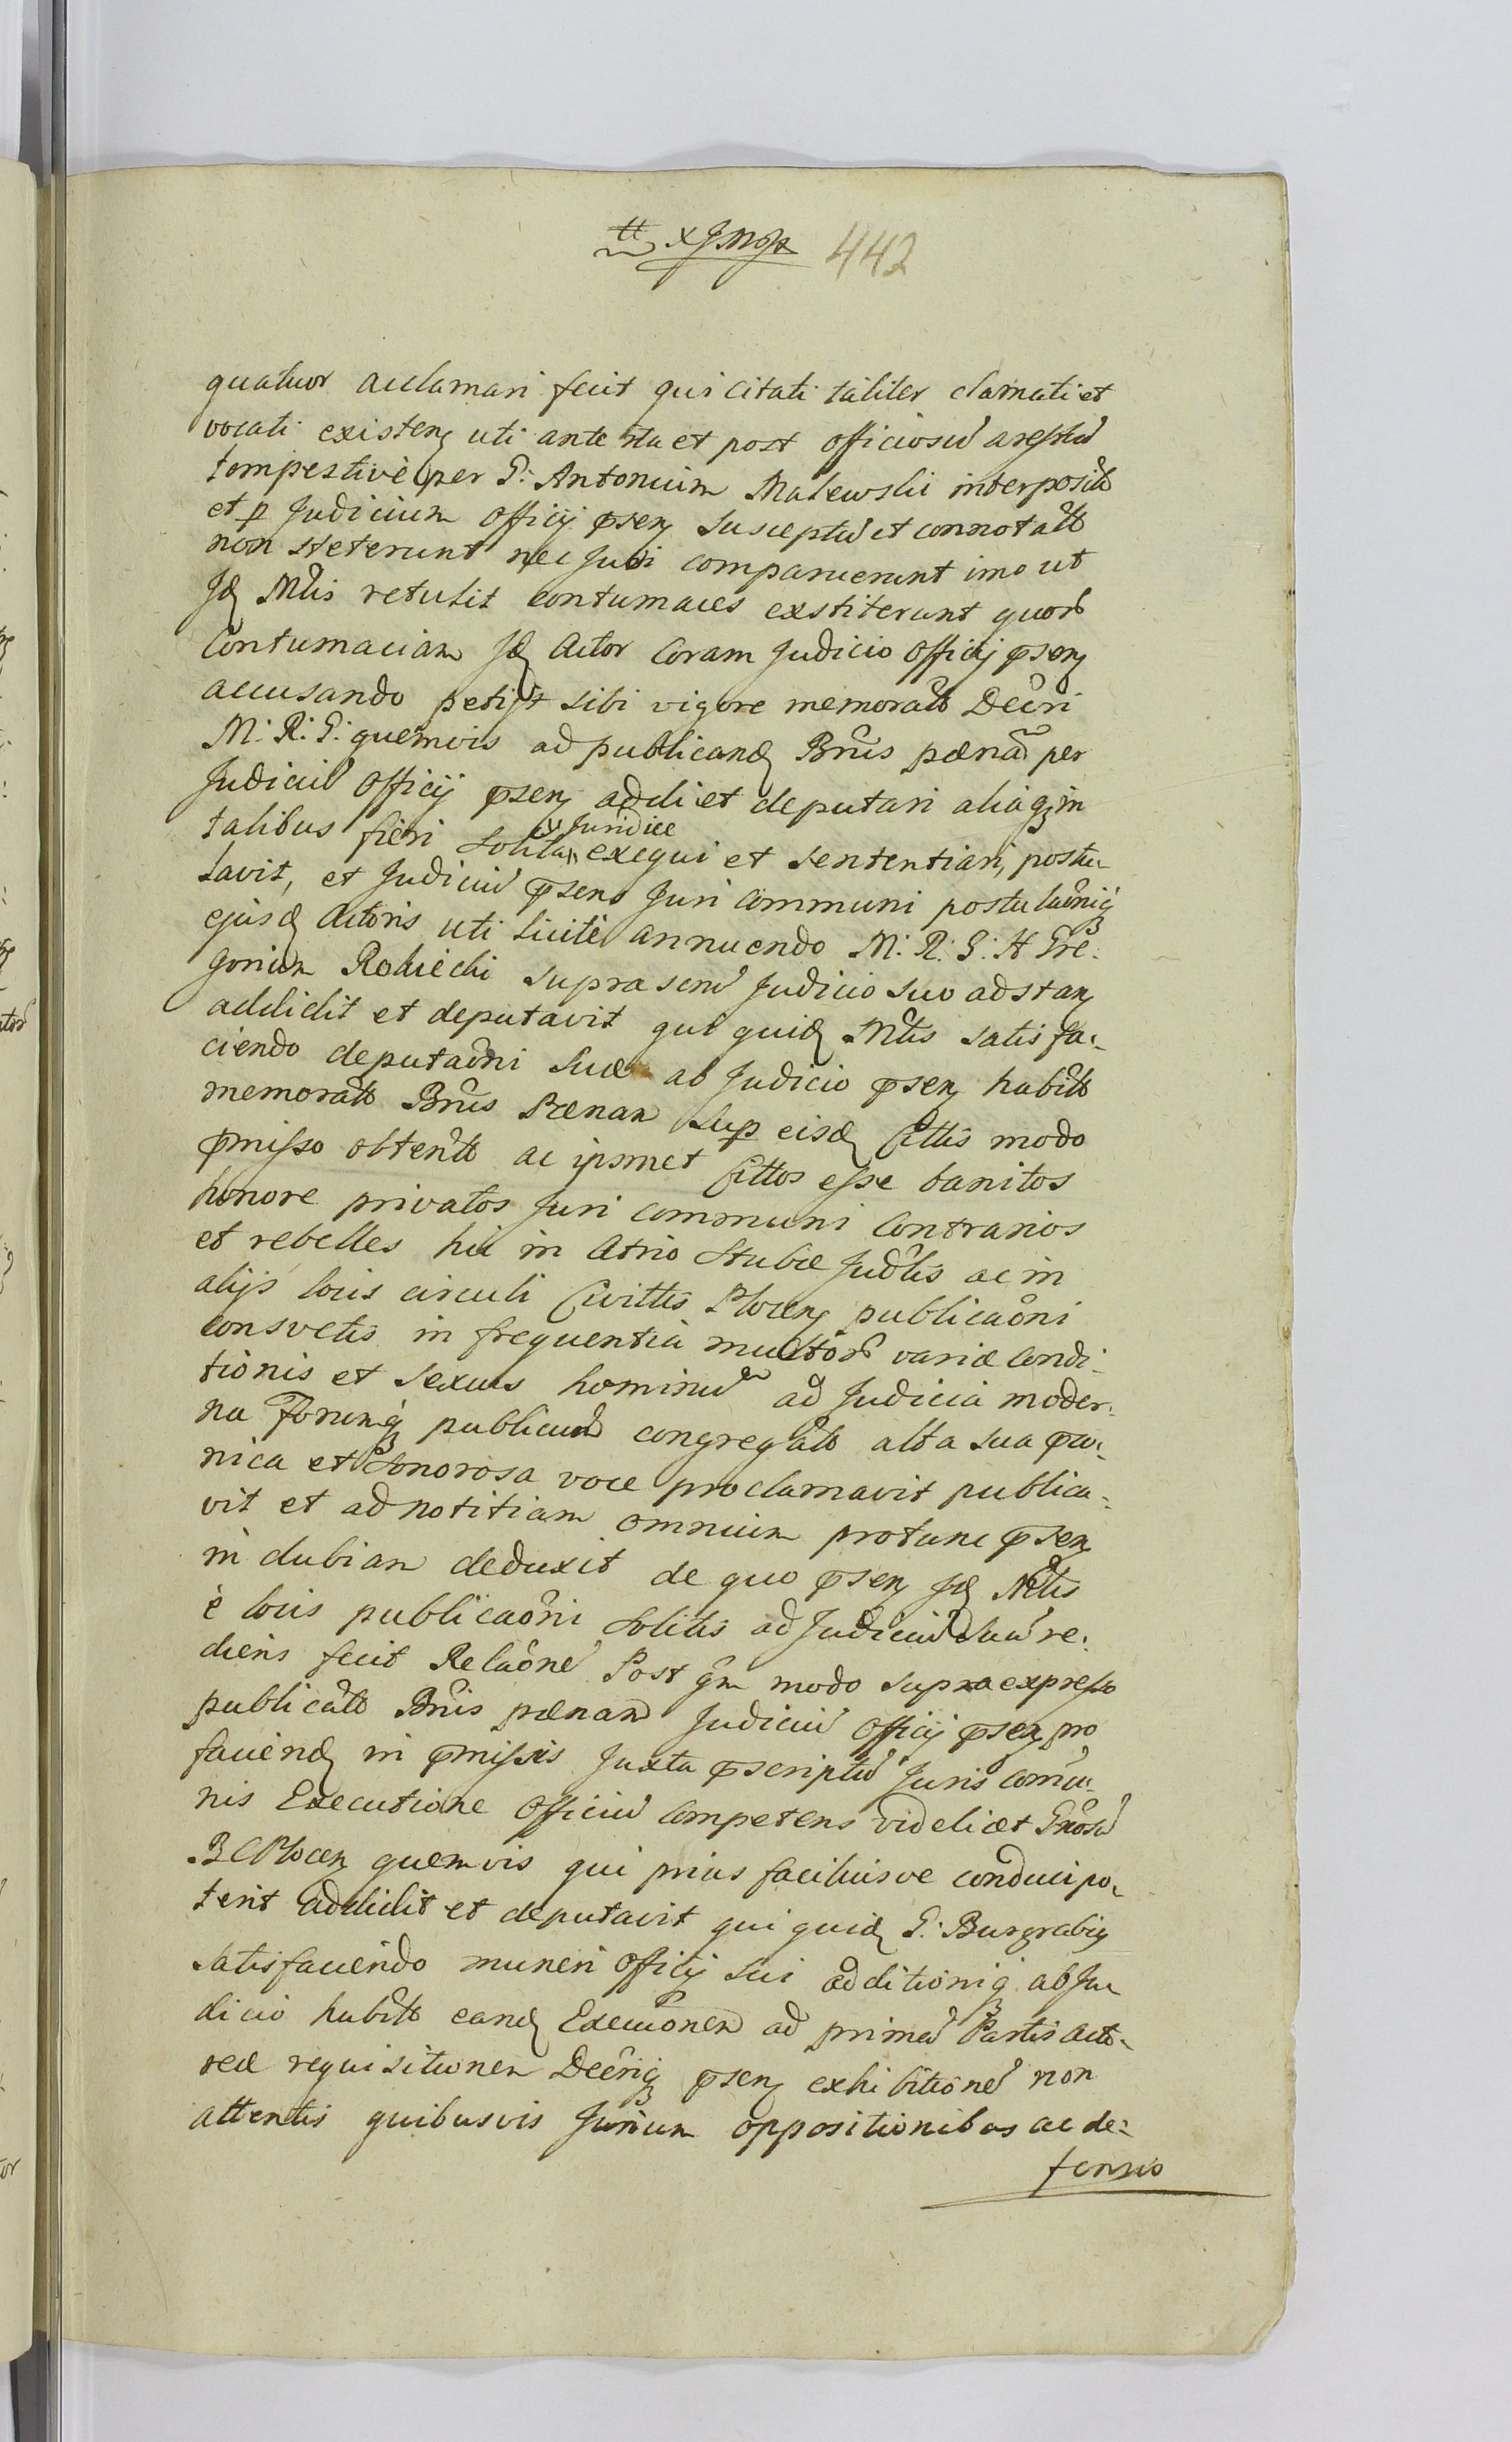 442
quatuor acclamari fecit qui citati taliter clamati et
vocati existen uti ante ita et post officiosũ arestũ
tempestivè per G: Antonium Malewski interposit
et p Judicium Officij psen susceptũ et connotat
non steterunt nec Judi comparuerunt imo ut
Id Mlis retulit contumaces exstiterunt quor
Contumaciam Id Actor Coram Judicio Officij psen
accusando petijt sibi vigore memorat Decri
M: R: G: quemvis ad publicand Bnis pænam per
Judiciũ Officij psen addi et deputari aliaq in
talibus fieri solita Juridice exequi et sententiari, postu-
lavit, et Judiciũ psens Juri Communi postulaõniq
ejusd Actoris uti licitè annuendo M: R: G: H Gre:
gorium Robiecki suprascrũ Judicio suo adstan
addidit et deputavit qui quid Mlis satisfa-
ciendo deputaõni suæ ab Judicio psen habit
memorat Bnis Pænam sup eisd Cittis modo
pmisso obtent ac ipsmet Cittos esse banitos
honore privatos Juri communi Contrarios
et rebelles hic in Atrio Stubæ Judlis ac in
alijs locis circuli Civittis Plocen publicaõni
consvetis in frequentia multor variæ Condi-
tionis et sexus hominũ ad Judicia moder-
na Forumq publicum congregat alta sua præ-
nica et sonorosa voce proclamavit publica-
vit et ad notitiam omnium protunc psen
indubiam deduxit de quo psen Id Mlis
è locis publicaõni solitis ad Judiciũ suũ re:
diens fecit Relaõnẽ Post qm modo supra expresso
publicat Bnis pænam Judiciũ Officij psen pro
faciend in pmissis Juxta pscriptũ Juris Comu-
nis Executione Officiũ Competens videlicet Gnosũ
B C Plocen quemvis qui prius faciliusve conduci po-
terit addidit et deputavit qui quid G: Burgrabiq
satisfaciendo muneri Officij sui additioniq ab Ju
dicio habit eand Execuõnem ad primã Partis Acto-
reæ requisitionem Decriq psen exhibitionẽ non
attentis quibusvis Jurium oppositionibus ac de:
fensio